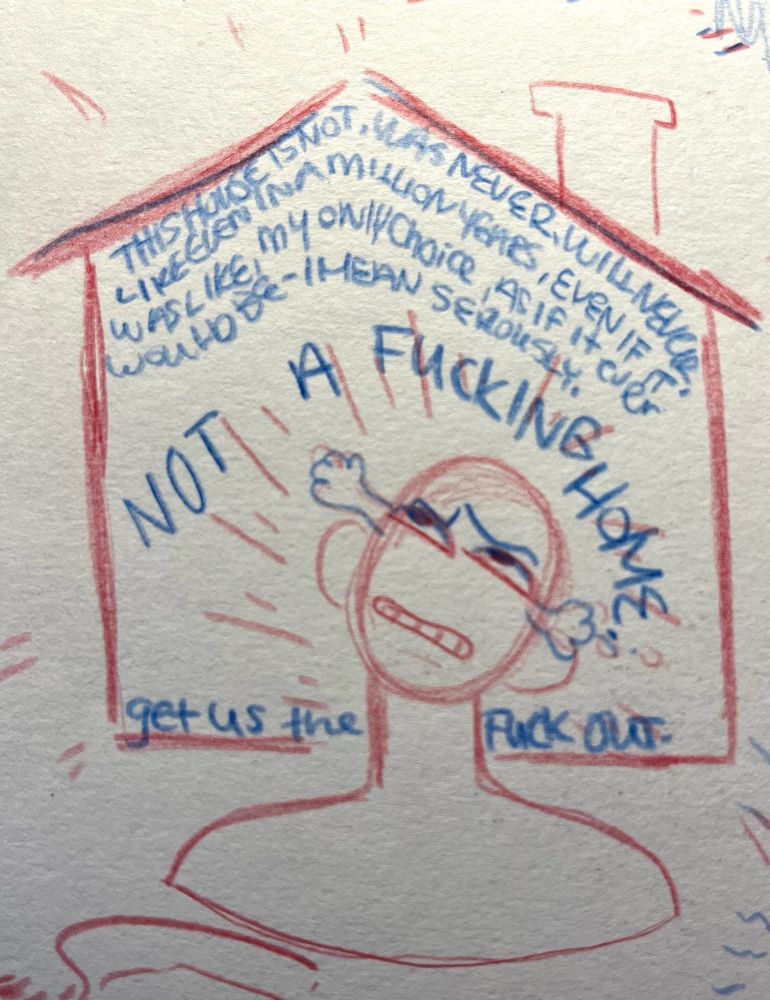 THIS HOUSE IS NOT, WAS NEVER, WILL NEVER,
LIKE EVEN IN A MILLION YEARS, EVEN IF IT
WAS LIKE, MY ONLY CHOICE, AS IF IT EVER
WOULD BE - I MEAN SERIOUSLY.
NOT A FUCKING HOME.
get us the FUCK OUT.